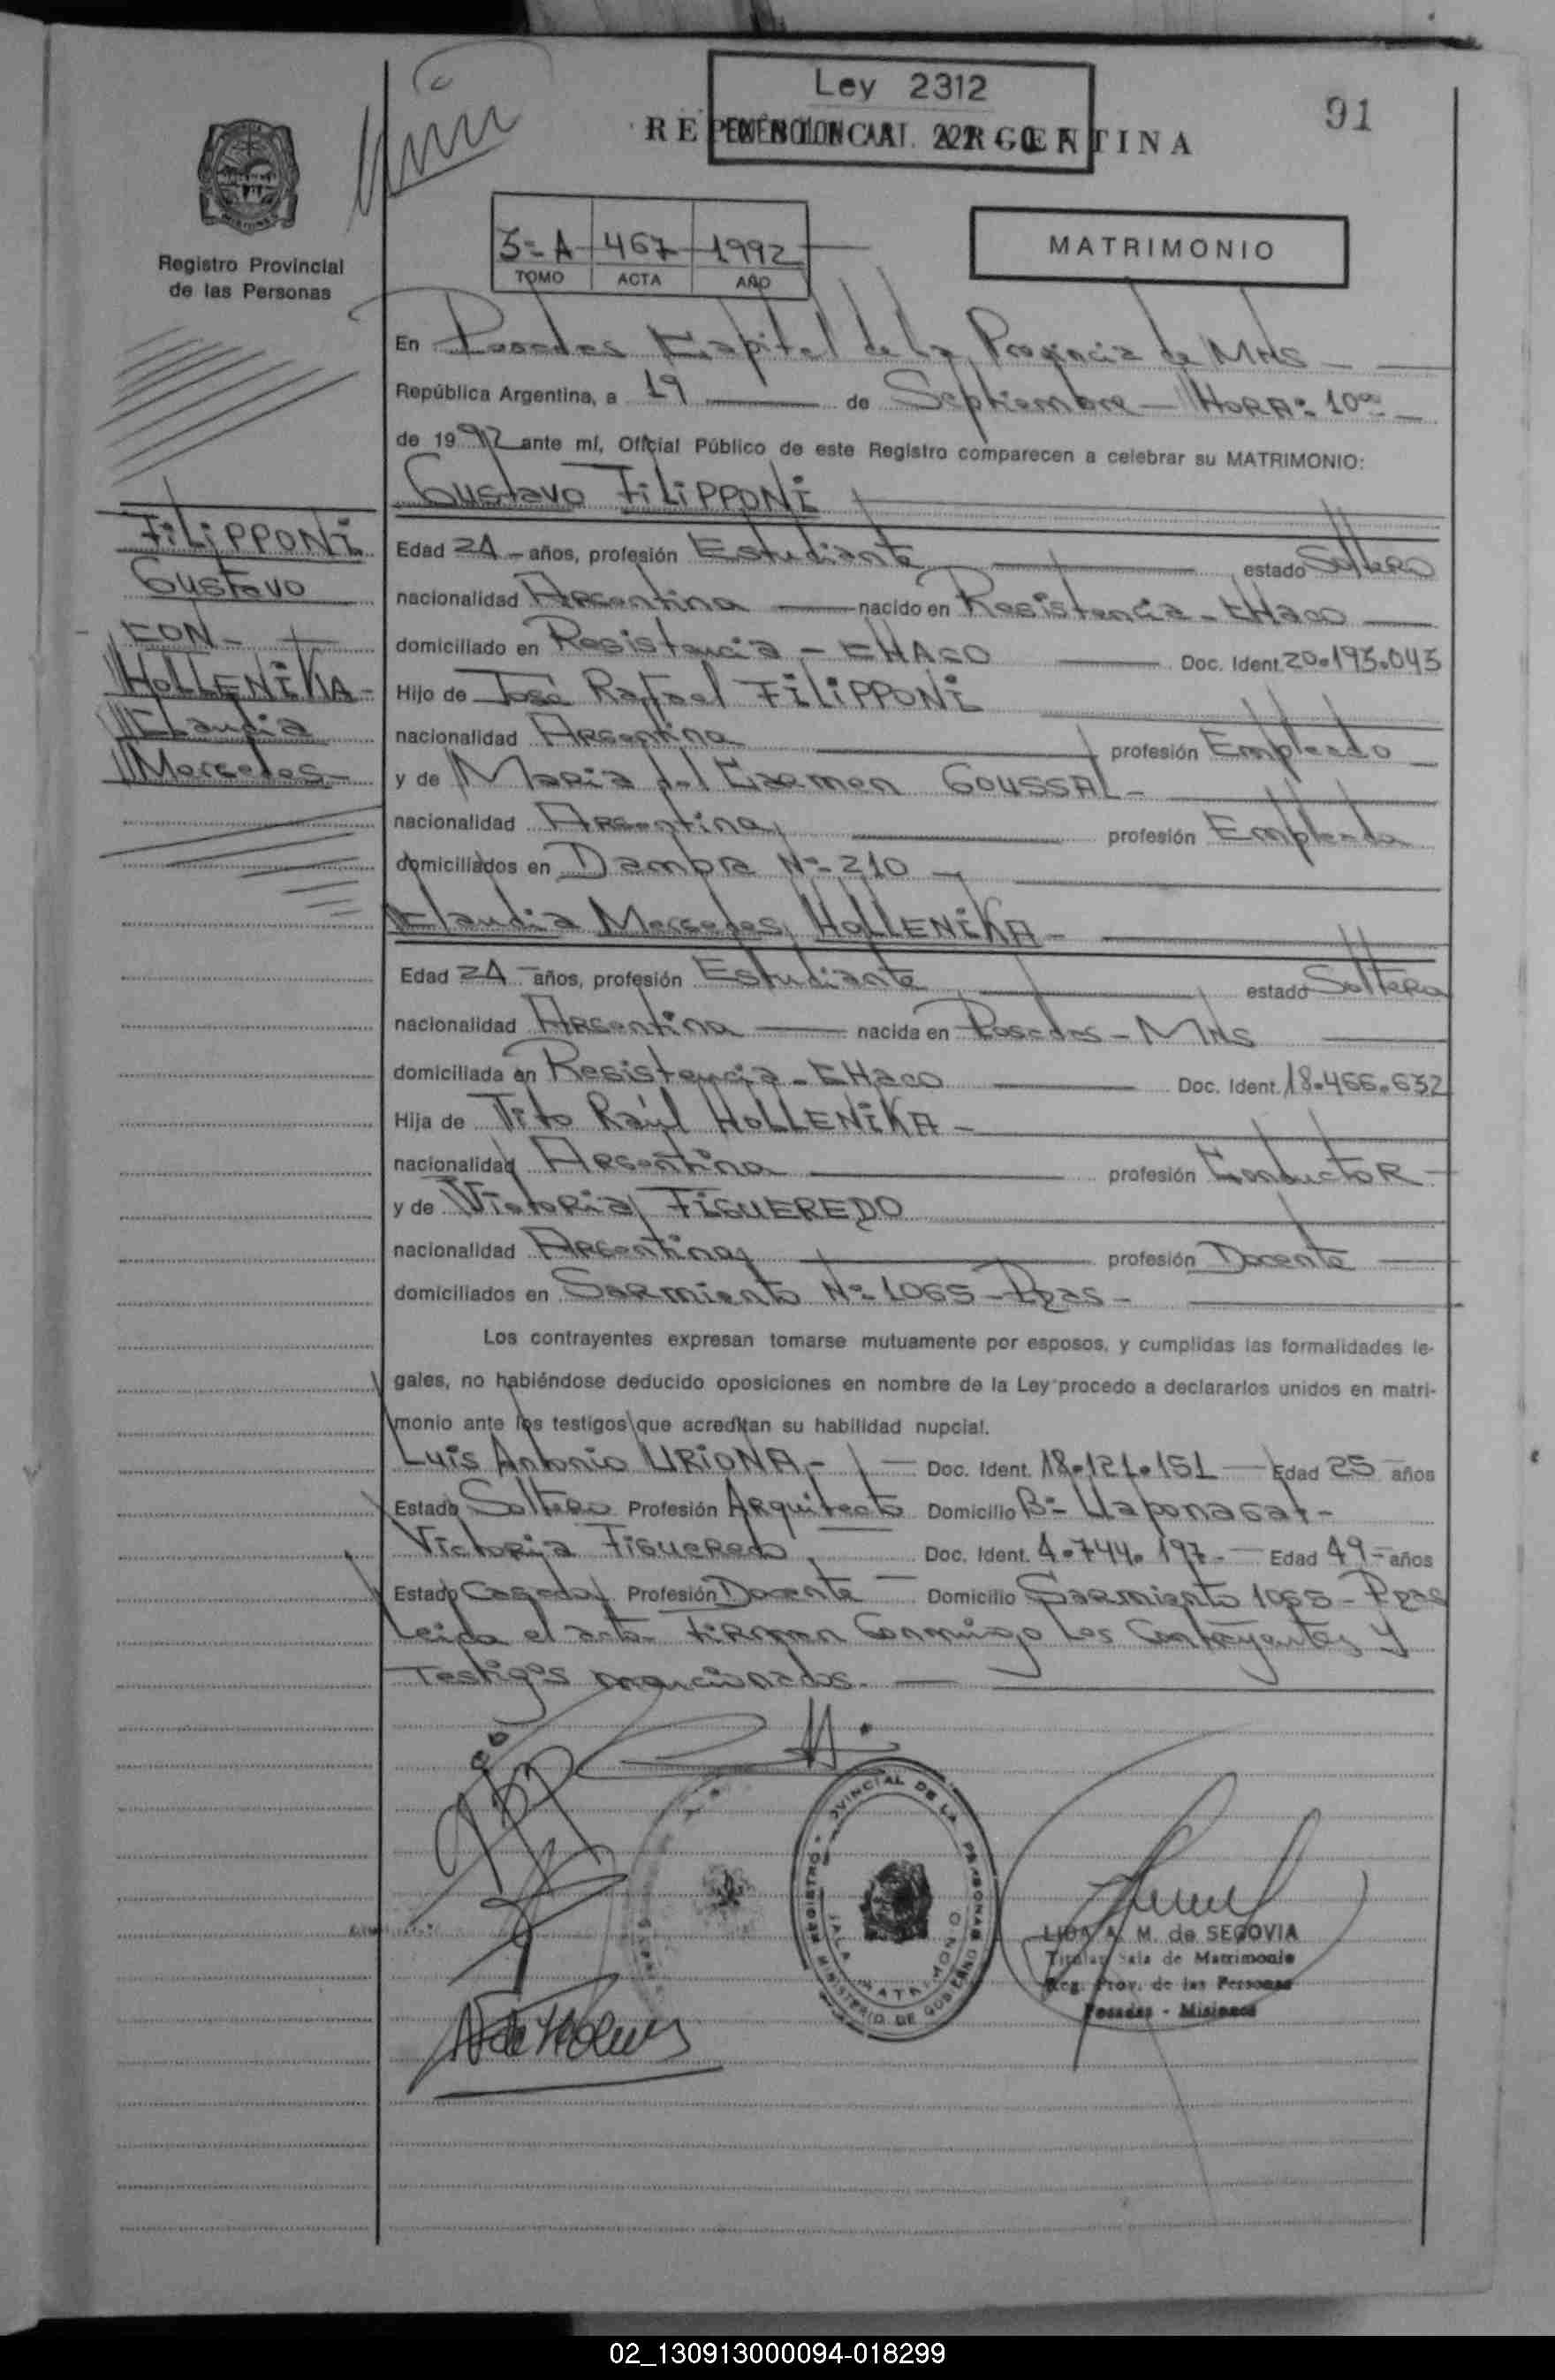 Ley 2312
91
REPÚBLICA ARGENTINA
Registro Provincial
de las Personas
3-A 467 1992
TOMO ACTA AÑO
MATRIMONIO
En Posadas Capital de la Provincia de MNS
República Argentina, a 19 de Septiembre - HORA: 10
de 1992 ante mí, Oficial Público de este Registro comparecen a celebrar su MATRIMONIO:
Gustavo FILIPPONI
FILIPPONI
Gustavo
CON-
HOLLENIKA-
Claudia
Mercedes-
Edad 24 años, profesión Estudiante estado Soltero
nacionalidad Argentina nacido en Resistencia - CHaco
domiciliado en Resistencia - CHACO Doc. Ident. 20.193.043
Hijo de José Rafael FILIPPONI
nacionalidad Argentina profesión Empleado
y de Maria del Carmen GOUSSAL-
nacionalidad Argentina profesión Empleada
domiciliados en Dambra Nº 210
Claudia Mercedes HOLLENIKA-
Edad 24 años, profesión Estudiante estado Soltera
nacionalidad Argentina nacida en Posadas - MNS
domiciliada en Resistencia - CHaco Doc. Ident. 18.466.632
Hija de Tito Raúl HOLLENIKA-
nacionalidad Argentina profesión Conductor
y de Victoria FIGUEREDO
nacionalidad Argentina profesión Docente
domiciliados en Sarmiento Nº 1065 - Pdas-
Los contrayentes expresan tomarse mutuamente por esposos, y cumplidas las formalidades le-
gales, no habiéndose deducido oposiciones en nombre de la Ley procedo a declararlos unidos en matri-
monio ante los testigos que acreditan su habilidad nupcial.
Luis Antonio URIONA- Doc. Ident. 18.121.151 Edad 25 años
Estado Soltero Profesión Arquitecto Domicilio Bº
Victoria Figueredo Doc. Ident. 4.744.197- Edad 49 años
Estado Casada Profesión Docente Domicilio Sarmiento 1065 - Pdas
Leida el acta firman Conmigo los Contrayentes y
Testigos mencionados.
REGISTRO PROVINCIAL DE LAS PERSONAS
SALA MATRIMONIO
MINISTERIO DE GOBIERNO
LIDA A. M. de SEGOVIA
Titular Sala de Matrimonio
Reg. Prov. de las Personas
Posadas - Misiones
02_130913000094-018299